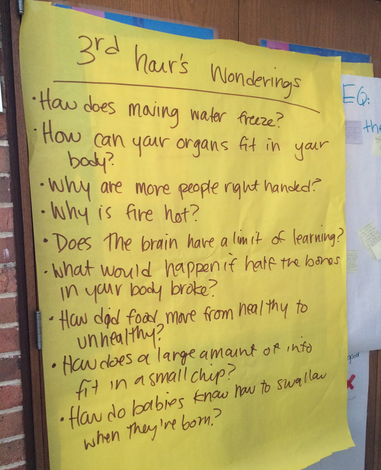 3rd hour's Wonderings
• How does moving water freeze?
• How can your organs fit in your
body?
• Why are more people right handed?
• Why is fire hot?
• Does the brain have a limit of learning?
• What would happen if half the bones
in your body broke?
• How did food move from healthy to
unhealthy?
• How does a large amount of info
fit in a small chip?
• How do babies know how to swallow
when they're born?
EQ: